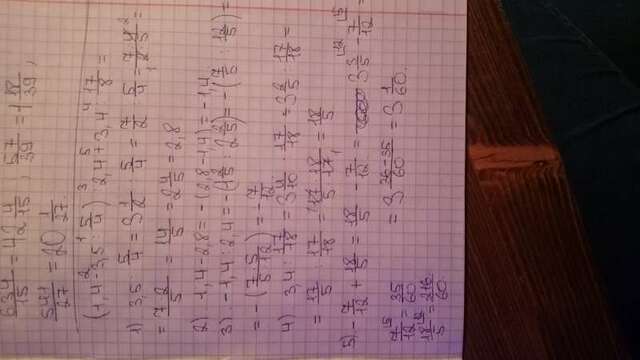 634/15 = 42 4/15, 57/39 = 1 18/39,
541/27 = 20 1/27.
(1,4 - 3,5 : 5/4) : 2,4 + 3,4 : 17/18 =
1) 3,5 : 5/4 = 3 1/2 : 5/4 = 7/2 : 5/4 = 7·4/2·5 =
= 7·2/5 = 14/5 = 2 4/5 = 2,8
2) 1,4 - 2,8 = -(2,8 - 1,4) = -1,4
3) -1,4 : 2,4 = -(1 2/5 : 2 2/5) = -(7/5 : 12/5) =
= -(7/5 · 5/12) = -7/12
4) 3,4 : 17/18 = 3 4/10 : 17/18 = 3 2/5 : 17/18 =
= 17/5 : 17/18 = 17/5 · 18/17 = 18/5
5) -7/12 + 18/5 = 18/5 - 7/12 = 3 3/5 - 7/12 =
7/12 = 35/60 = 3 36-35/60 = 3 1/60.
18/5 = 216/60.